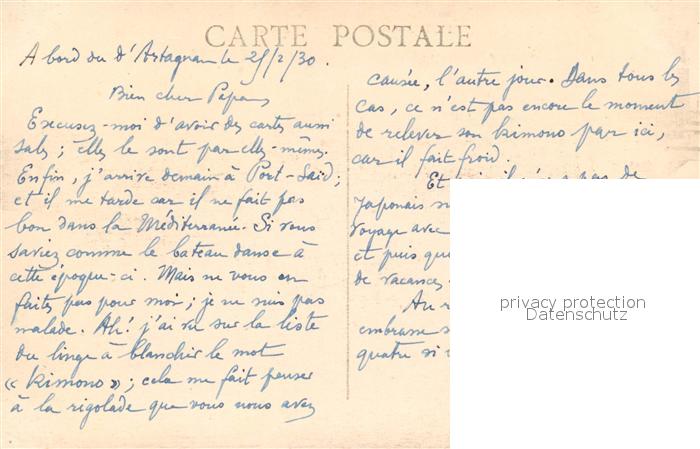 CARTE POSTALE
A bord du d'Artagnan le 25/2/30.
Bien cher Papa,
Excusez-moi d'avoir des cartes aussi
sales ; elles le sont par elles-mêmes.
Enfin, j'arrive demain à Port-Saïd ;
et il me tarde car il ne fait pas
bon dans la Méditerranée. Si vous
saviez comme le bateau danse à
cette époque-ci. Mais ne vous en
faites pas pour moi ; je ne suis pas
malade. Ah ! j'ai vu sur la liste
du linge à blanchir le mot
« kimono » ; cela me fait penser
à la rigolade que vous nous avez
causée, l'autre jour. Dans tous les
cas, ce n'est pas encore le moment
de relever son kimono par ici,
car il fait froid.
Et pas de
Japonais
voyage avec
et puis que
de vacances
Au
embrasse
quatre si
privacy protection
Datenschutz